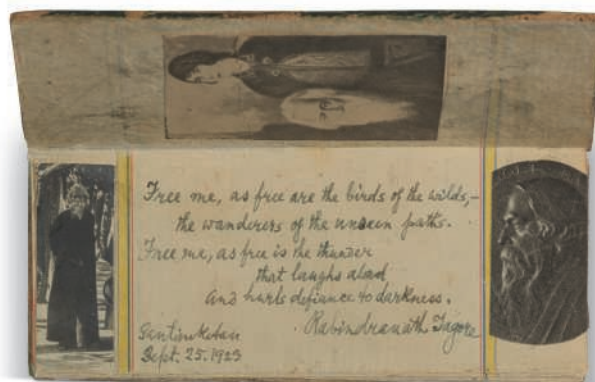 Free me, as free are the birds of the wilds,—
the wanderers of the unseen paths.
Free me, as free is the thunder
that laughs aloud
and hurls defiance to darkness.
Rabindranath Tagore
Santiniketan
Sept. 25. 1923